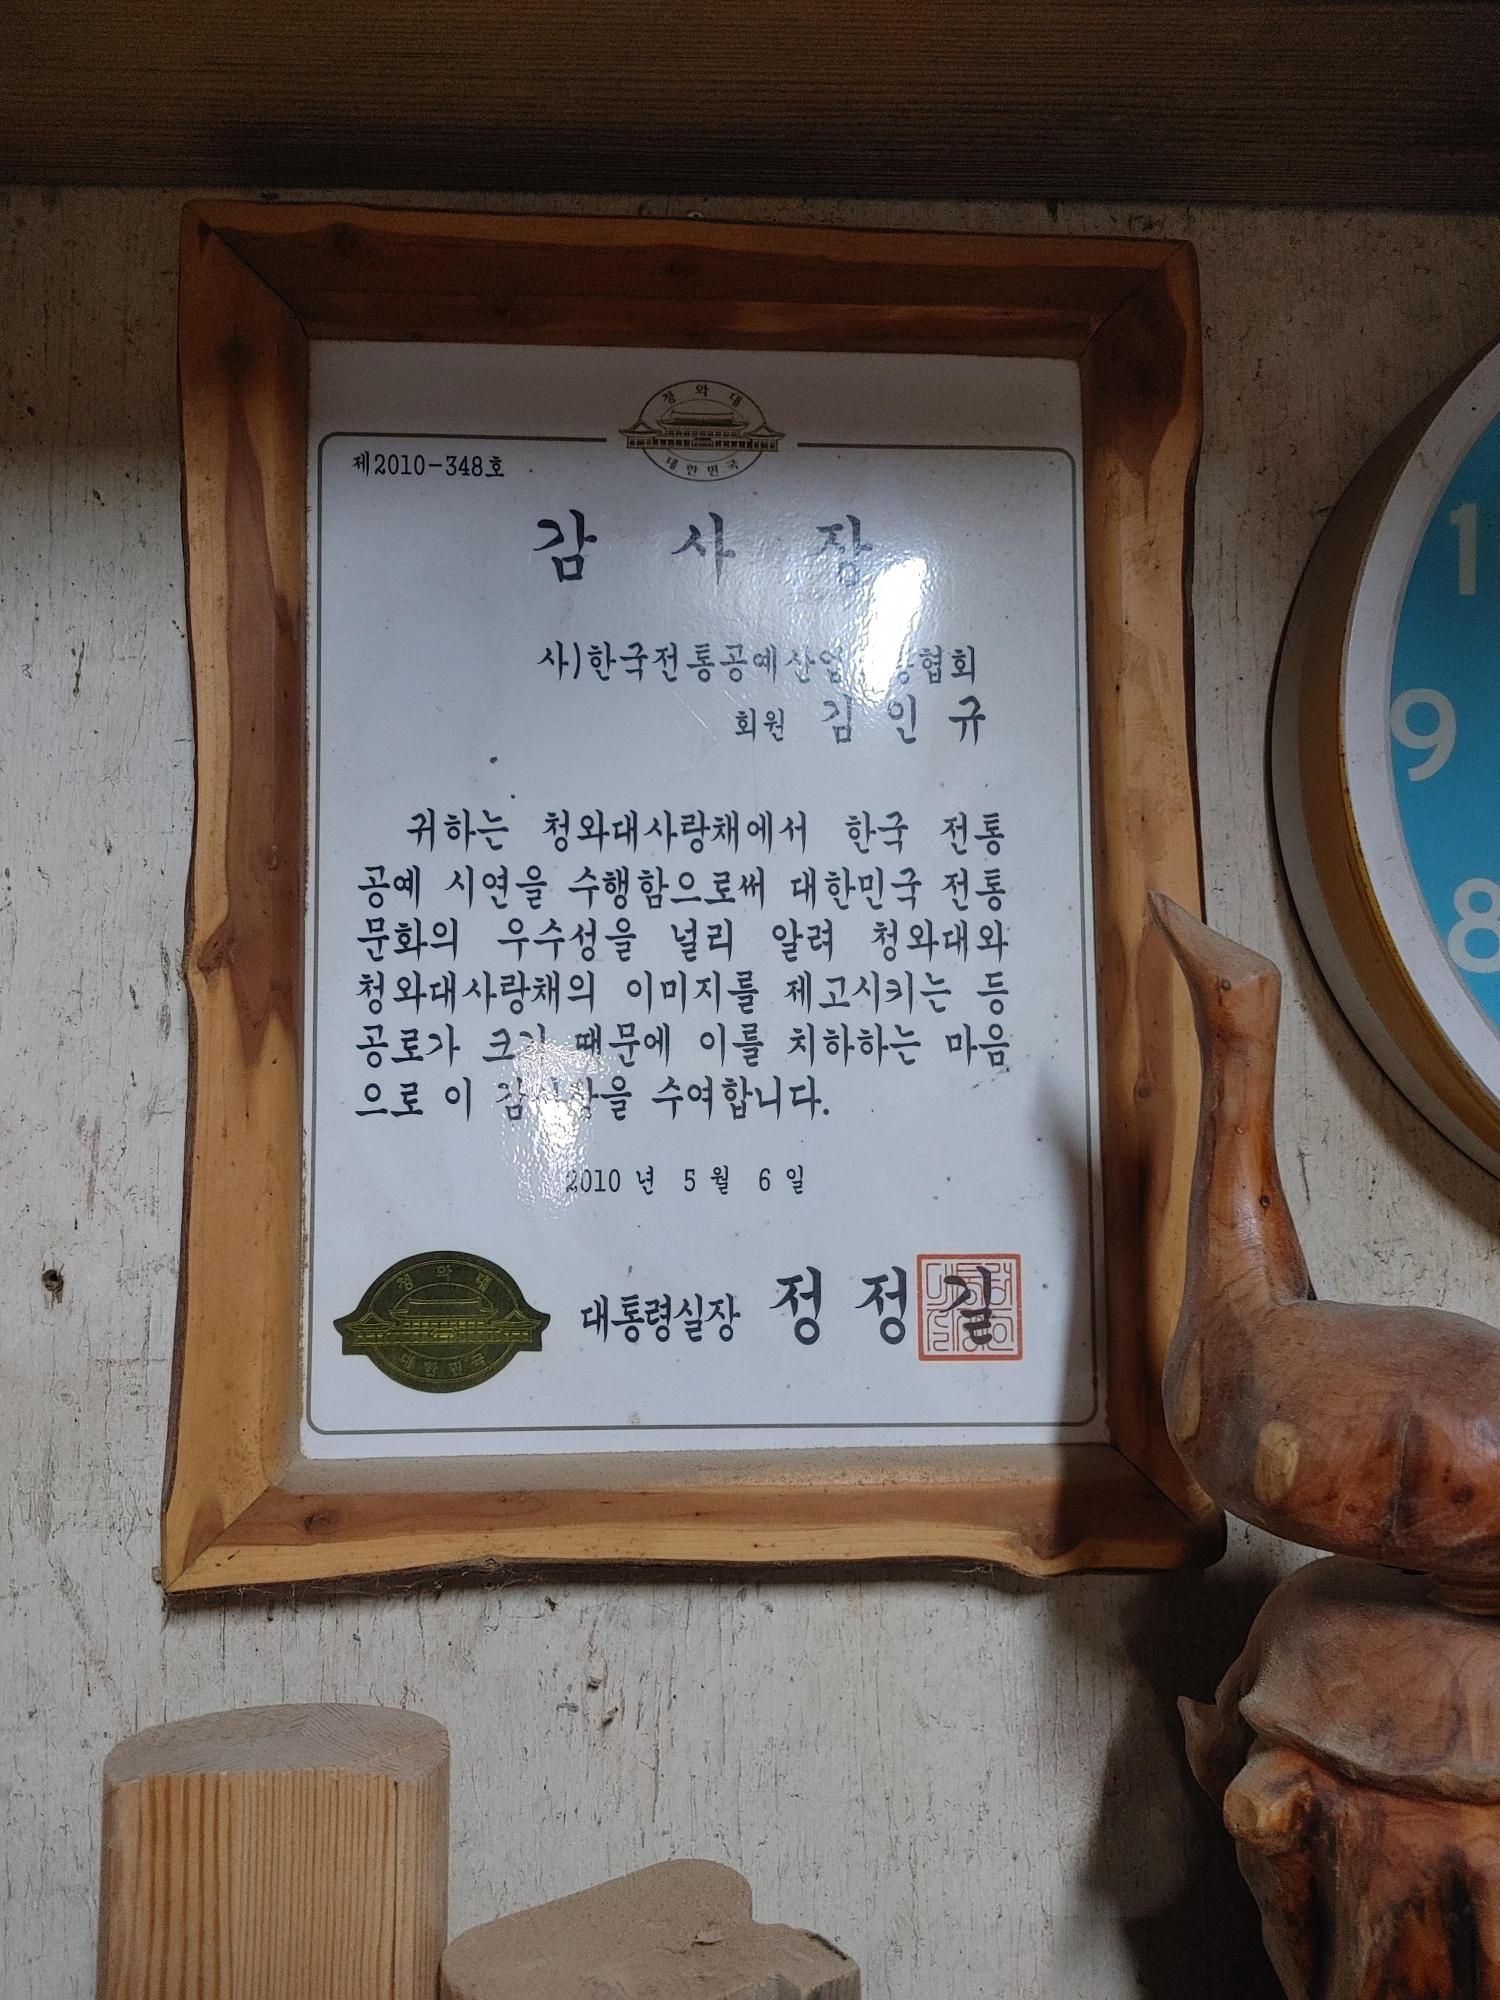 청와대
대한민국
제2010-348호
감 사 장
사)한국전통공예산업 협회
회원 김 인 규
귀하는 청와대사랑채에서 한국 전통
공예 시연을 수행함으로써 대한민국 전통
문화의 우수성을 널리 알려 청와대와
청와대사랑채의 이미지를 제고시키는 등
공로가 크기 때문에 이를 치하하는 마음
으로 이 감사장을 수여합니다.
2010 년 5 월 6 일
청와대
대한민국
대통령실장 정 정 길
1
9
8